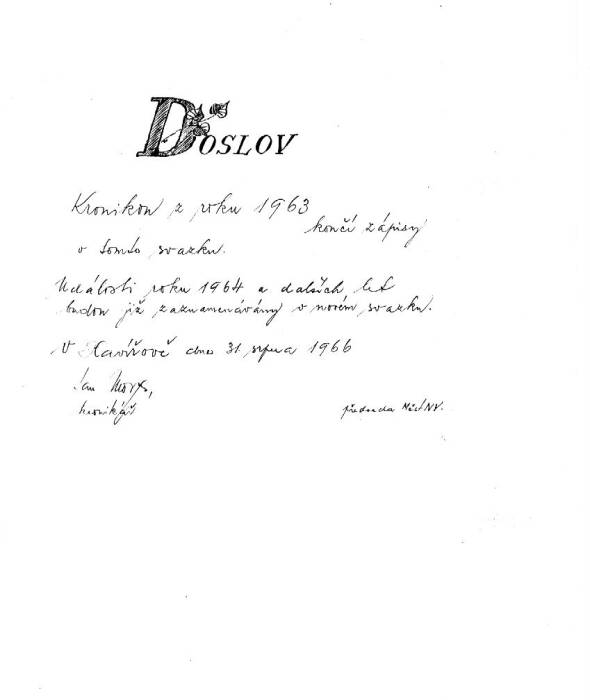 DOSLOV
Kronikou z roku 1963
končí zápisy
v tomto svazku.
Události roku 1964 a dalších let
budou již zaznamenávány v novém svazku.
V Havířově dne 31. srpna 1966
Jan
kronikář
předseda MěstNV.